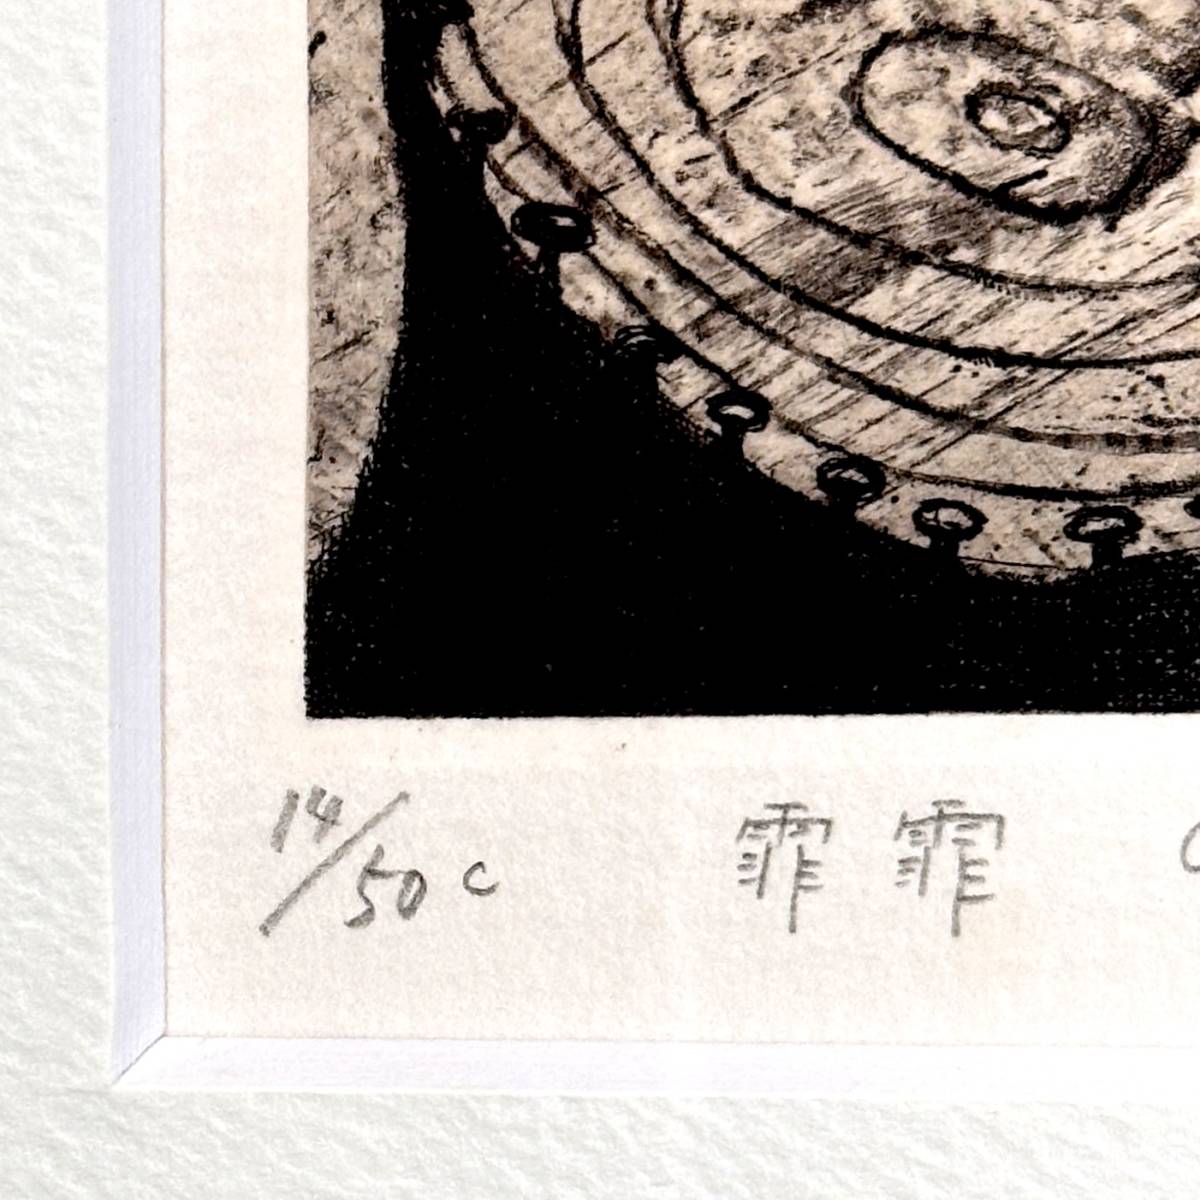 14/50 c 霏霏